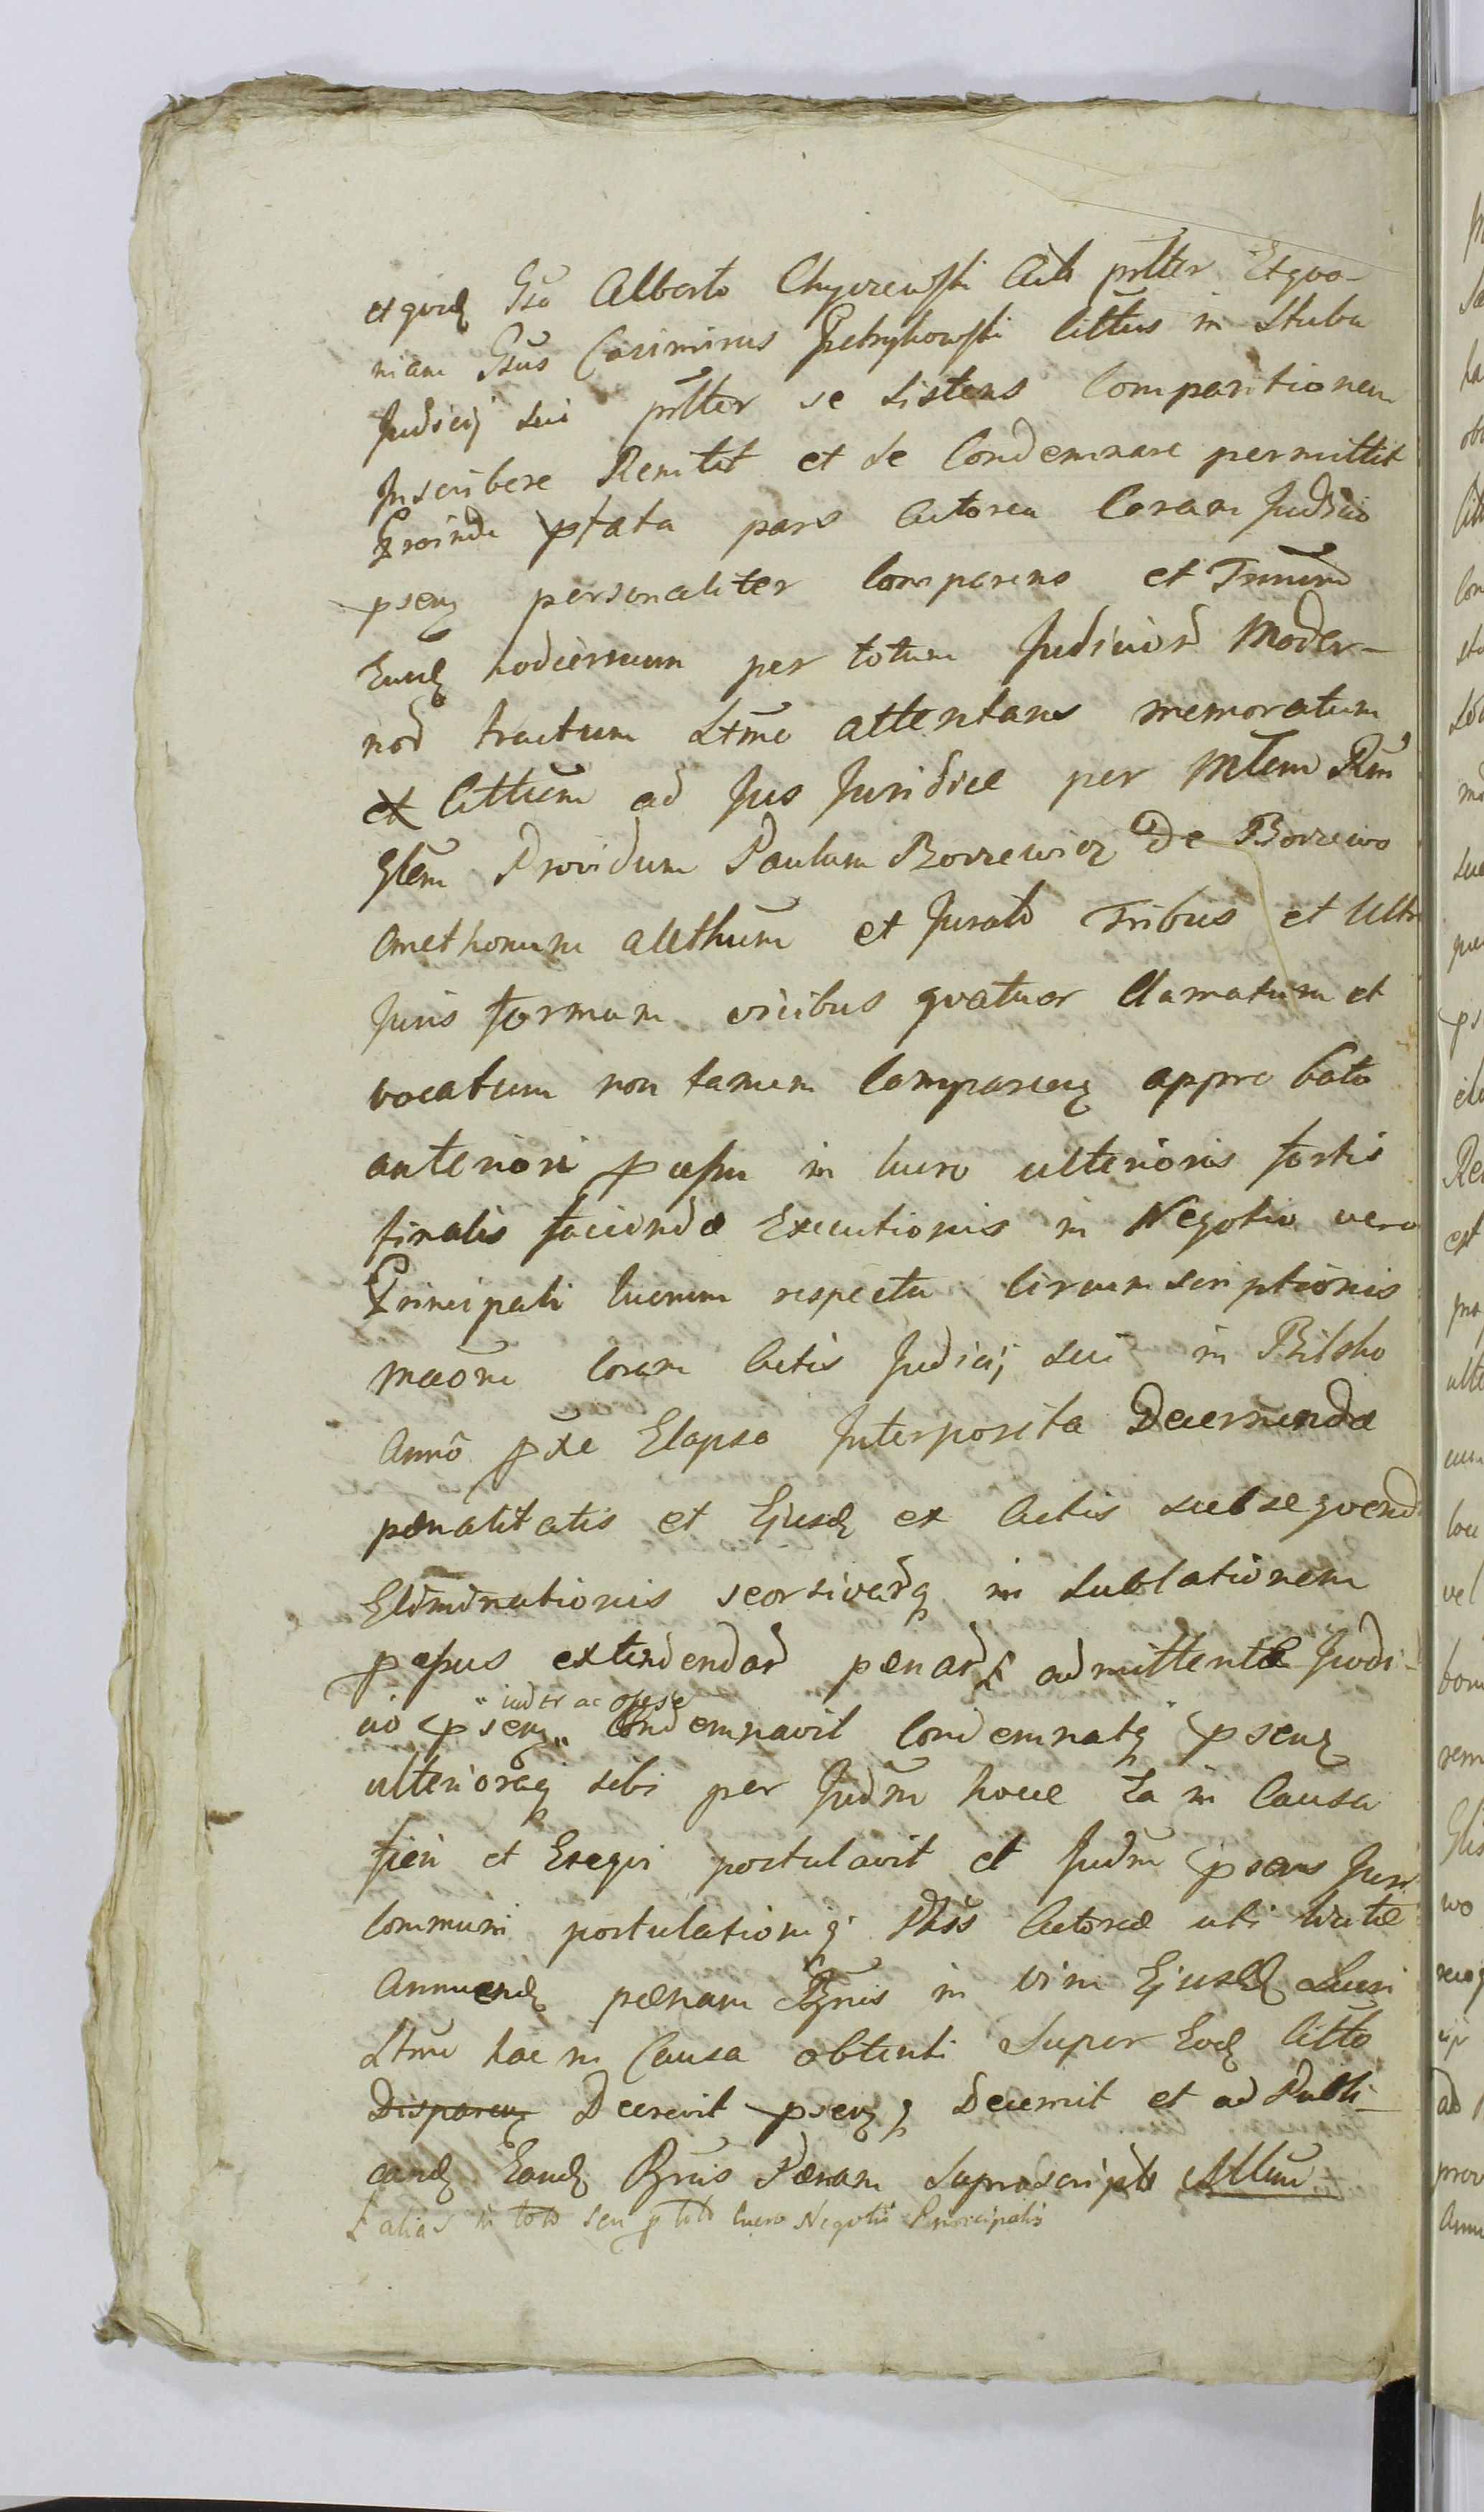 et qvid Gso Alberto Chyczewski Citto prltter Etqvo-
niam Gsus Casimirus Pietrykowski Cittus in Stuba
Judicij sui prltter se sistens Comparitionem
Inscribere Renitit et se Condemnare permittit
Proinde ptata pars Actorea Coram Judicio
psenz personaliter Comparens et Trmum
Eund hodiernum per totum Judicior Moder-
nor tractum Ltme attentans memoratum
et Cittum ad Jus Juridice per Mtem Rm
Glem Providum Paulum Borzewicz De Borzewo
Cmethonem alethum et Jurato Tribus et Ultra
Juris formam vicibus qvatuor Clamatum et
vocatum non tamen Comparenz approbato
anteriori pcessu in lucro ulterioris fortis
finalis faciendæ Executionis in Negotio vero
Principali lucrum respectu Circumscriptionis
maone Coram Actis Judicij sui in Bilsko
Anno pxe Elapso Interposita Decernendæ
pænalitatis et Ejusd ex Actis subseqvend
Eliminationis seorsivarq in sublationem
pcessus extendendar pænar £ admittentæ Judi-
cio psenz " Condemnavit Condemnatq psenz
" iudtr ac opese
ulterioraq sibi per Judm hocce Ea in Causa
fieri et Exeqvi postulavit et Judm psens Juri
Communi postulationiq Ptiss Actoreæ uti
Annuend pænam Bnis in vim Ejusd Lucri
Ltme hac in Causa obtenti Super Eod Citto
Disparenz Decrevit psenzq Decernit et ad Publi-
cand Eand Bnis Pænam Suprascripto Allum
£ alias in toto seu p toto lucro Negotii Principalis